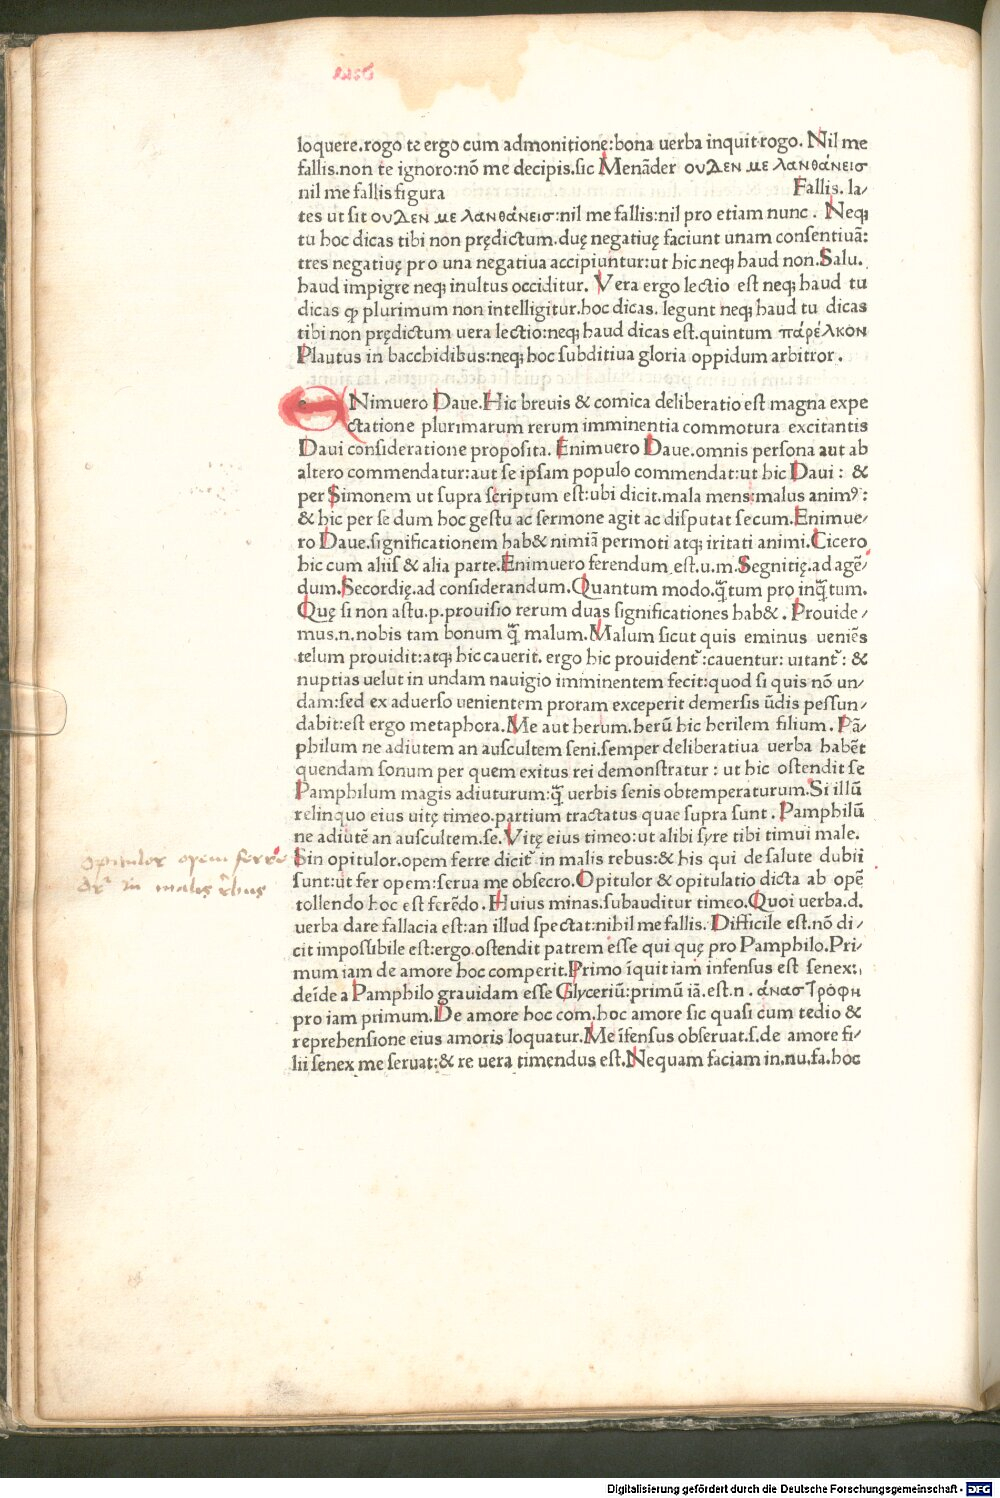 loquere.rogo te ergo cum admonitione:bona uerba inquit rogo. Nil me
fallis.non te ignoro:nō me decipis.sic Menāder ουΔεν με λανθάνεισ
nil me fallis figura Fallis. la/
tes ut sit ουΔεν με λανθάνεισ:nil me fallis:nil pro etiam nunc . Neqꝫ
tu hoc dicas tibi non prędictum.duę negatiuę faciunt unam consentiuā:
tres negatiuę pro una negatiua accipiuntur:ut hic neqꝫ haud non.Salu.
haud impigre neqꝫ inultus occiditur. Vera ergo lectio est neqꝫ haud tu
dicas ꝙ plurimum non intelligitur.hoc dicas. legunt neqꝫ haud tu dicas
tibi non prędictum uera lectio:neqꝫ haud dicas est.quintum πάρέλκον
Plautus in bacchidibus:neqꝫ hoc subditiua gloria oppidum arbitror .
e Nimuero Daue.Hic breuis & comica deliberatio est magna expe
ctatione plurimarum rerum imminentia commotura excitantis
Daui consideratione proposita. Enimuero Daue.omnis persona aut ab
altero commendatur:aut se ipsam populo commendat:ut hic Daui : &
per Simonem ut supra scriptum est:ubi dicit.mala mens:malus animꝰ :
& hic per se dum hoc gestu ac sermone agit ac disputat secum.Enimue/
ro Daue.significationem hab& nimiā permoti atqꝫ iritati animi.Cicero
hic cum aliis & alia parte.Enimuero ferendum est.u.m.Segnitię.ad agē/
dum.Secordię.ad considerandum.Quantum modo.q̄tum pro inq̄tum.
Quę si non astu.p.prouisio rerum duas significationes hab& . Prouide/
mus.n.nobis tam bonum q̄ malum.Malum sicut quis eminus ueniēs
telum prouidit:atqꝫ hic cauerit. ergo hic prouident᷑:cauentur: uitant᷑: &
nuptias uelut in undam nauigio imminentem fecit:quod si quis nō un/
dam:sed ex aduerso uenientem proram exceperit demersis ūdis pessun/
dabit:est ergo metaphora.Me aut herum.herū hic herilem filium. Pā/
philum ne adiutem an auscultem seni.semper deliberatiua uerba habēt
quendam sonum per quem exitus rei demonstratur : ut hic ostendit se
Pamphilum magis adiuturum:q̄ uerbis senis obtemperaturum.Si illū
relinquo eius uitę timeo.partium tractatus quae supra sunt . Pamphilū
ne adiutē an auscultem.se.Vitę eius timeo:ut alibi syre tibi timui male.
Sin opitulor.opem ferre dicit᷑ in malis rebus:& his qui de salute dubii
sunt:ut fer opem:serua me obsecro.Opitulor & opitulatio dicta ab opē
tollendo hoc est ferēdo . Huius minas.subauditur timeo.Quoi uerba.d.
uerba dare fallacia est:an illud spectat:nihil me fallis. Difficile est.nō di/
cit impossibile est:ergo ostendit patrem esse qui quę pro Pamphilo.Pri/
mum iam de amore hoc comperit.Primo īquit iam infensus est senex:
deīde a Pamphilo grauidam esse Glyceriū:primū iā.est.n . άναστρόφη
pro iam primum.De amore hoc com.hoc amore sic quasi cum tedio &
reprehensione eius amoris loquatur.Me īfensus obseruat.s.de amore fi/
lii senex me seruat:& re uera timendus est.Nequam faciam in.nu.fa.hoc
opitulor opem ferre
dr̄ in malis rebus
Digitalisierung gefördert durch die Deutsche Forschungsgemeinschaft - DFG